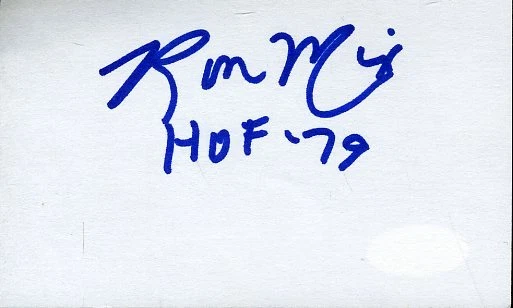 Ron Mix
HOF - 79